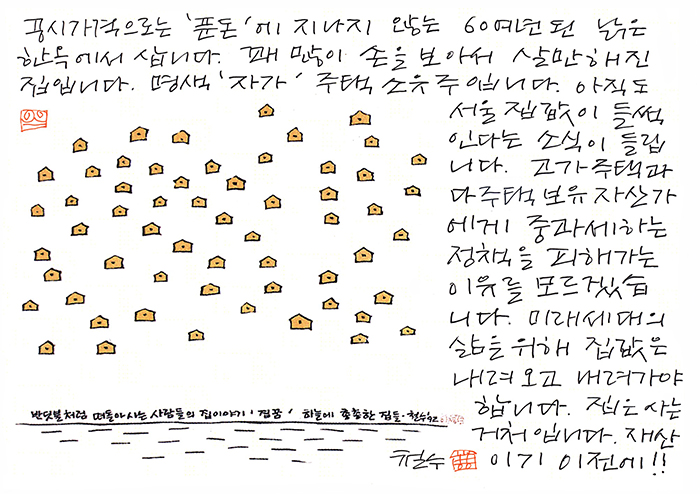 공시가격으로는 '푼돈'에 지나지 않는 60여년 된 낡은
한옥에서 삽니다. 꽤 많이 손을 보아서 살만해진
집입니다. 명색 '자가' 주택 소유주입니다. 아직도
서울 집값이 들썩
인다는 소식이 들립
니다. 고가주택과
다주택 보유 자산가
에게 중과세하는
정책을 피해가는
이유를 모르겠습
니다. 미래세대의
삶을 위해 집값은
내려오고 내려가야
합니다. 집은 사는
거처입니다. 재산
이기 이전에!!
반딧불처럼 떠돌아 사는 사람들의 집이야기 '집꿈' 하늘에 총총한 집들 · 철수 92
철수